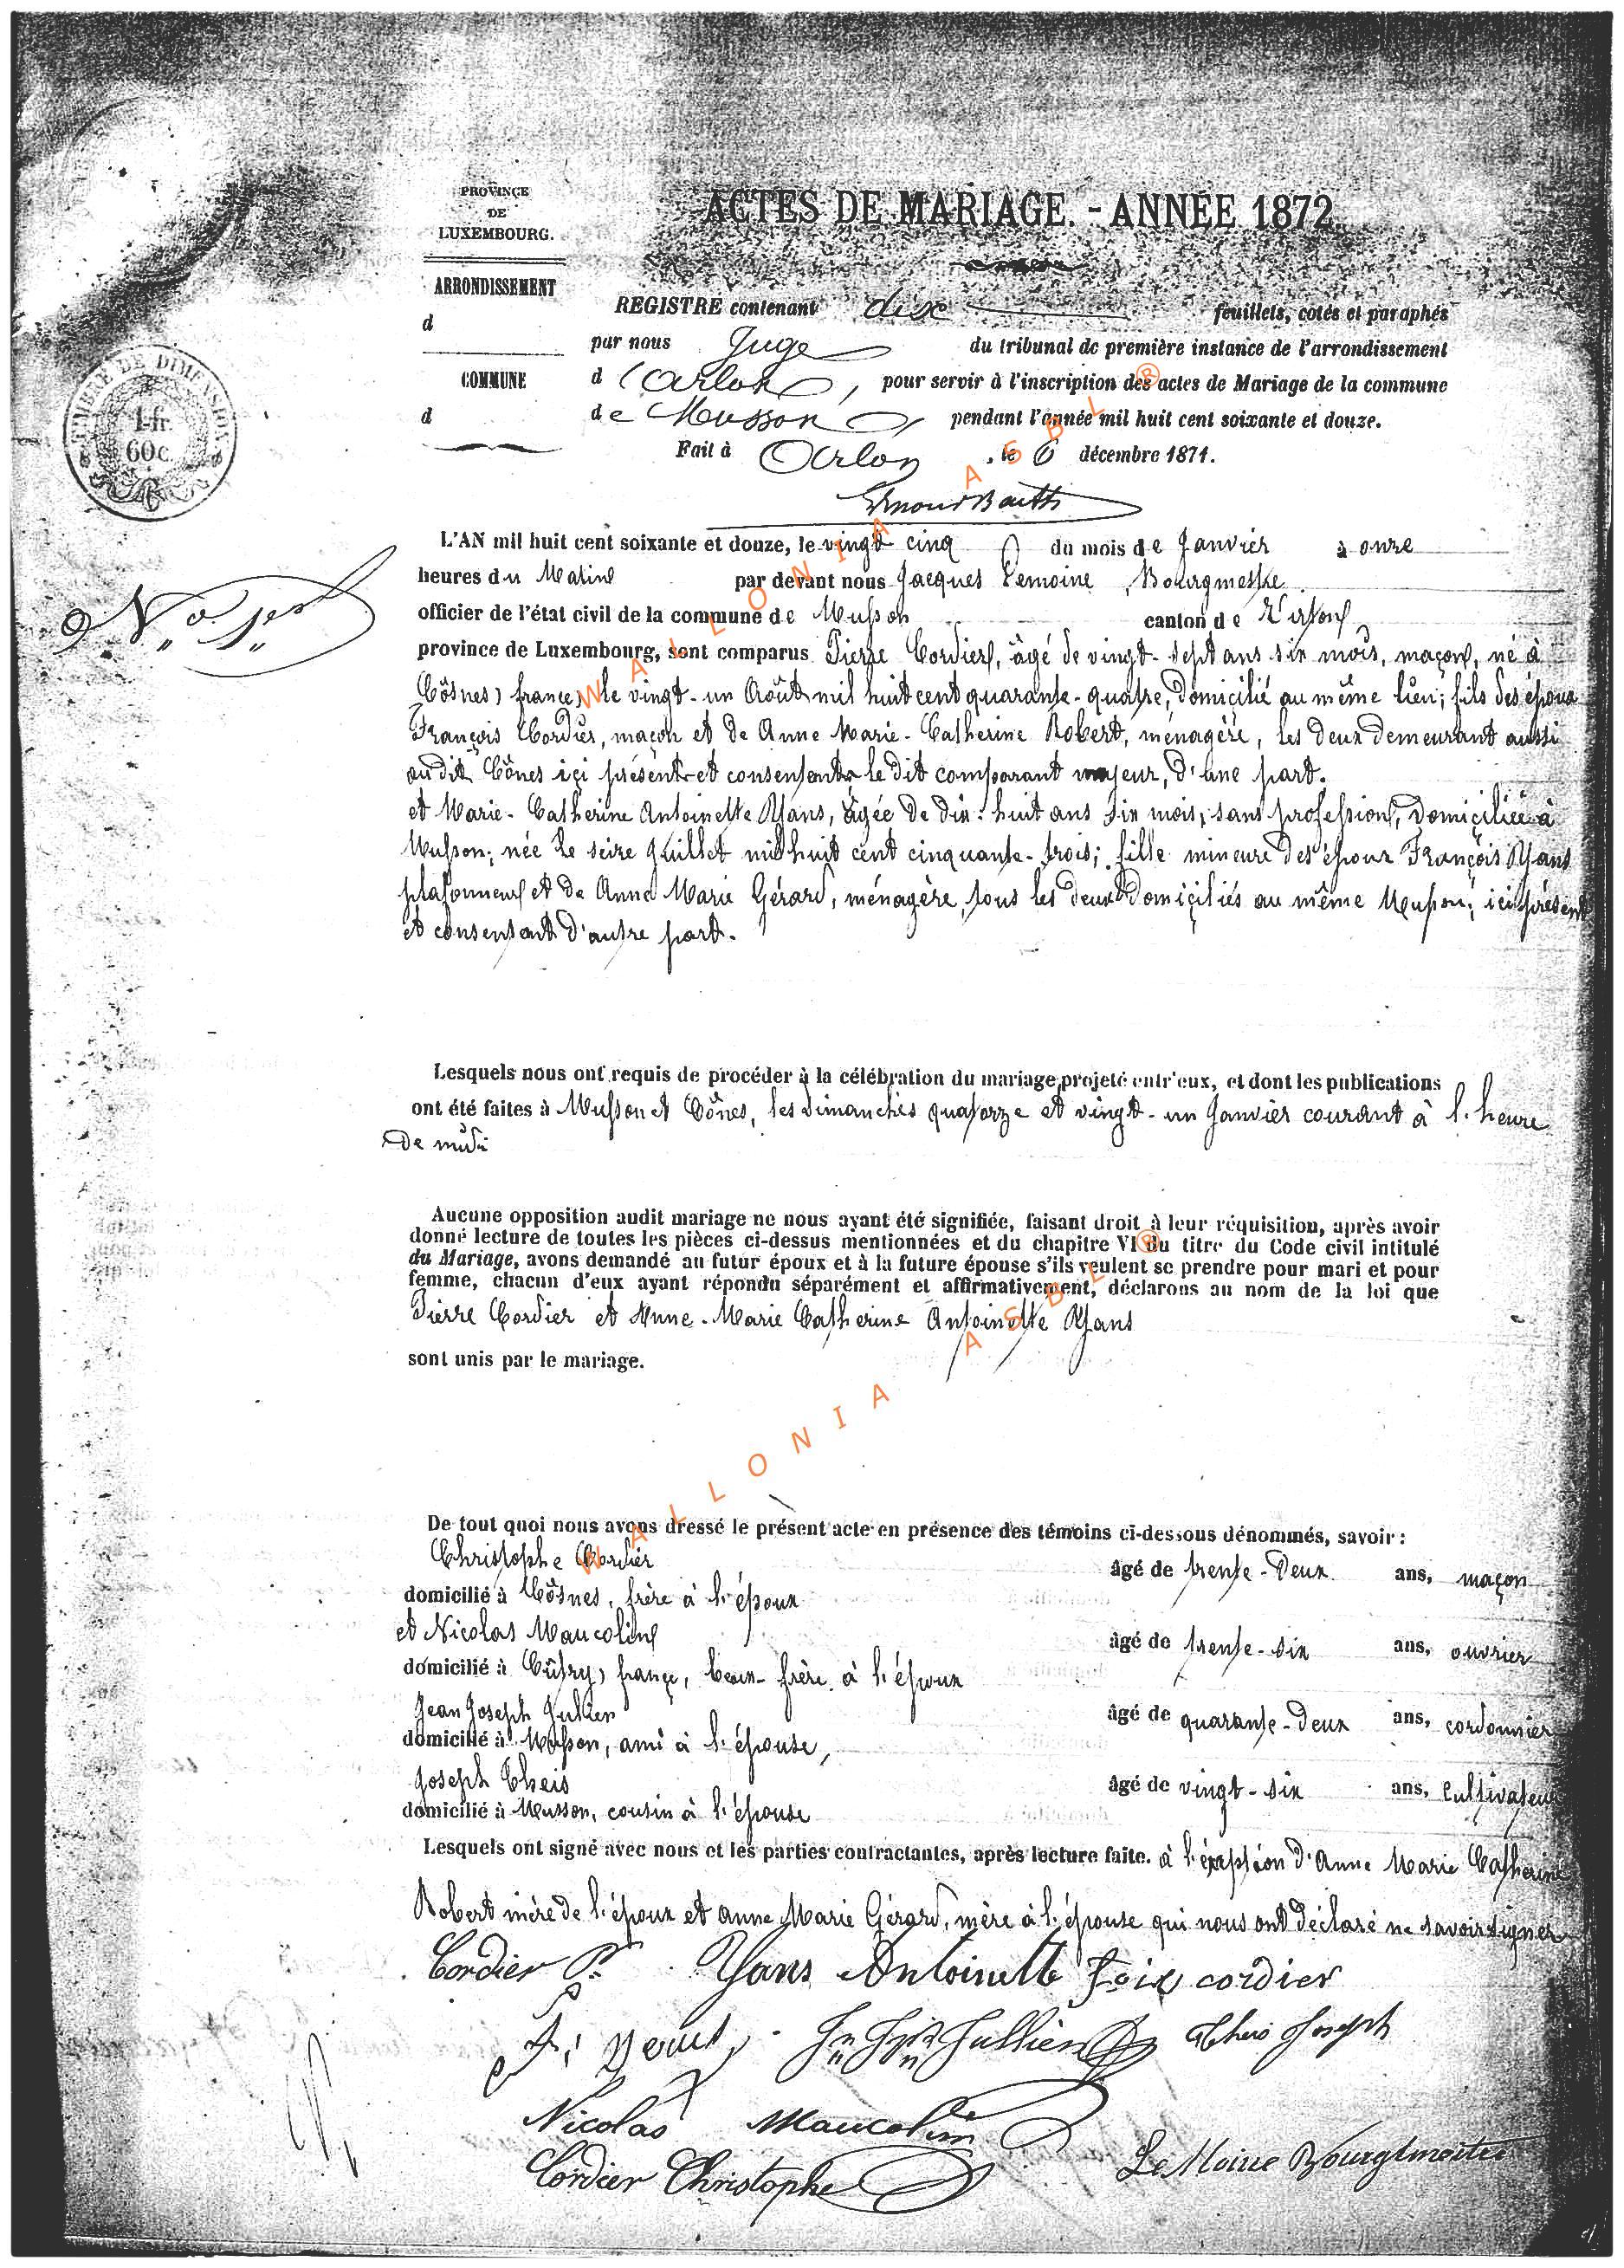 PROVINCE
DE
LUXEMBOURG.
ARRONDISSEMENT
d
COMMUNE
d
TIMBRE DE DIMENSION
1 fr.
60 c.
ACTES DE MARIAGE. - ANNÉE 1872.
REGISTRE contenant dix feuillets, cotés et paraphés
par nous Juge du tribunal de première instance de l'arrondissement
d'Arlon, pour servir à l'inscription des actes de Mariage de la commune
de Musson pendant l'année mil huit cent soixante et douze.
Fait à Arlon, le 6 décembre 1871.
N° 1er
L'AN mil huit cent soixante et douze, le vingt cinq du mois de Janvier à onze
heures du Matin par devant nous Jacques Lemoine, Bourgmestre
officier de l'état civil de la commune de Musson canton de Virton
province de Luxembourg, sont comparus Pierre Cordier, âgé de vingt-sept ans six mois, maçon, né à
Côsnes) france) le vingt-un Août mil huit cent quarante-quatre, domicilié au même lieu; fils des époux
François Cordier, maçon et de Anne Marie-Catherine Robert, ménagère, les deux demeurant aussi
au dit Cônes içi présent et consentants le dit comparant majeur, d'une part.
et Marie-Catherine Antoinette Yans, âgée de dix-huit ans six mois, sans profession, domiciliée à
Musson; née le seize Juillet mil huit cent cinquante-trois; fille mineure des époux François Yans
plafonneur et de Anne Marie Gérard, ménagère, tous les deux domiçiliés au même Musson; ici présent
et consentant d'autre part.
Lesquels nous ont requis de procéder à la célébration du mariage projeté entr'eux, et dont les publications
ont été faites à Musson et Cônes, les dimanches quatorze et vingt-un Janvier courant à l'heure
de midi
Aucune opposition audit mariage ne nous ayant été signifiée, faisant droit à leur réquisition, après avoir
donné lecture de toutes les pièces ci-dessus mentionnées et du chapitre VI du titre du Code civil intitulé
du Mariage, avons demandé au futur époux et à la future épouse s'ils veulent se prendre pour mari et pour
femme, chacun d'eux ayant répondu séparément et affirmativement, déclarons au nom de la loi que
Pierre Cordier et Anne-Marie Catherine Antoinette Yans
sont unis par le mariage.
De tout quoi nous avons dressé le présent acte en présence des témoins ci-dessous dénommés, savoir :
Christophe Cordier âgé de trente-deux ans, maçon
domicilié à Côsnes, frère à l'époux
et Nicolas Maucolin âgé de trente-six ans, ouvrier
domicilié à france, beau-frère à l'époux
Jean Joseph Jullien âgé de quarante-deux ans, cordonnier
domicilié à Musson, ami à l'épouse,
Joseph Theis âgé de vingt-six ans, cultivateur
domicilié à Musson, cousin à l'épouse
Lesquels ont signé avec nous et les parties contractantes, après lecture faite. à l'éxeption d'Anne Marie Catherine
Robert mère de l'époux et Anne Marie Gérard, mère à l'épouse qui nous ont déclaré ne savoir signer
Cordier Pre Yans Antoinette Fçois cordier
Jn Jph Jullien Theis Joseph
Nicolas Maucolin
Cordier Christophe LeMoine Bourgmestre
WALLONIA ASBL ®
WALLONIA ASBL ®